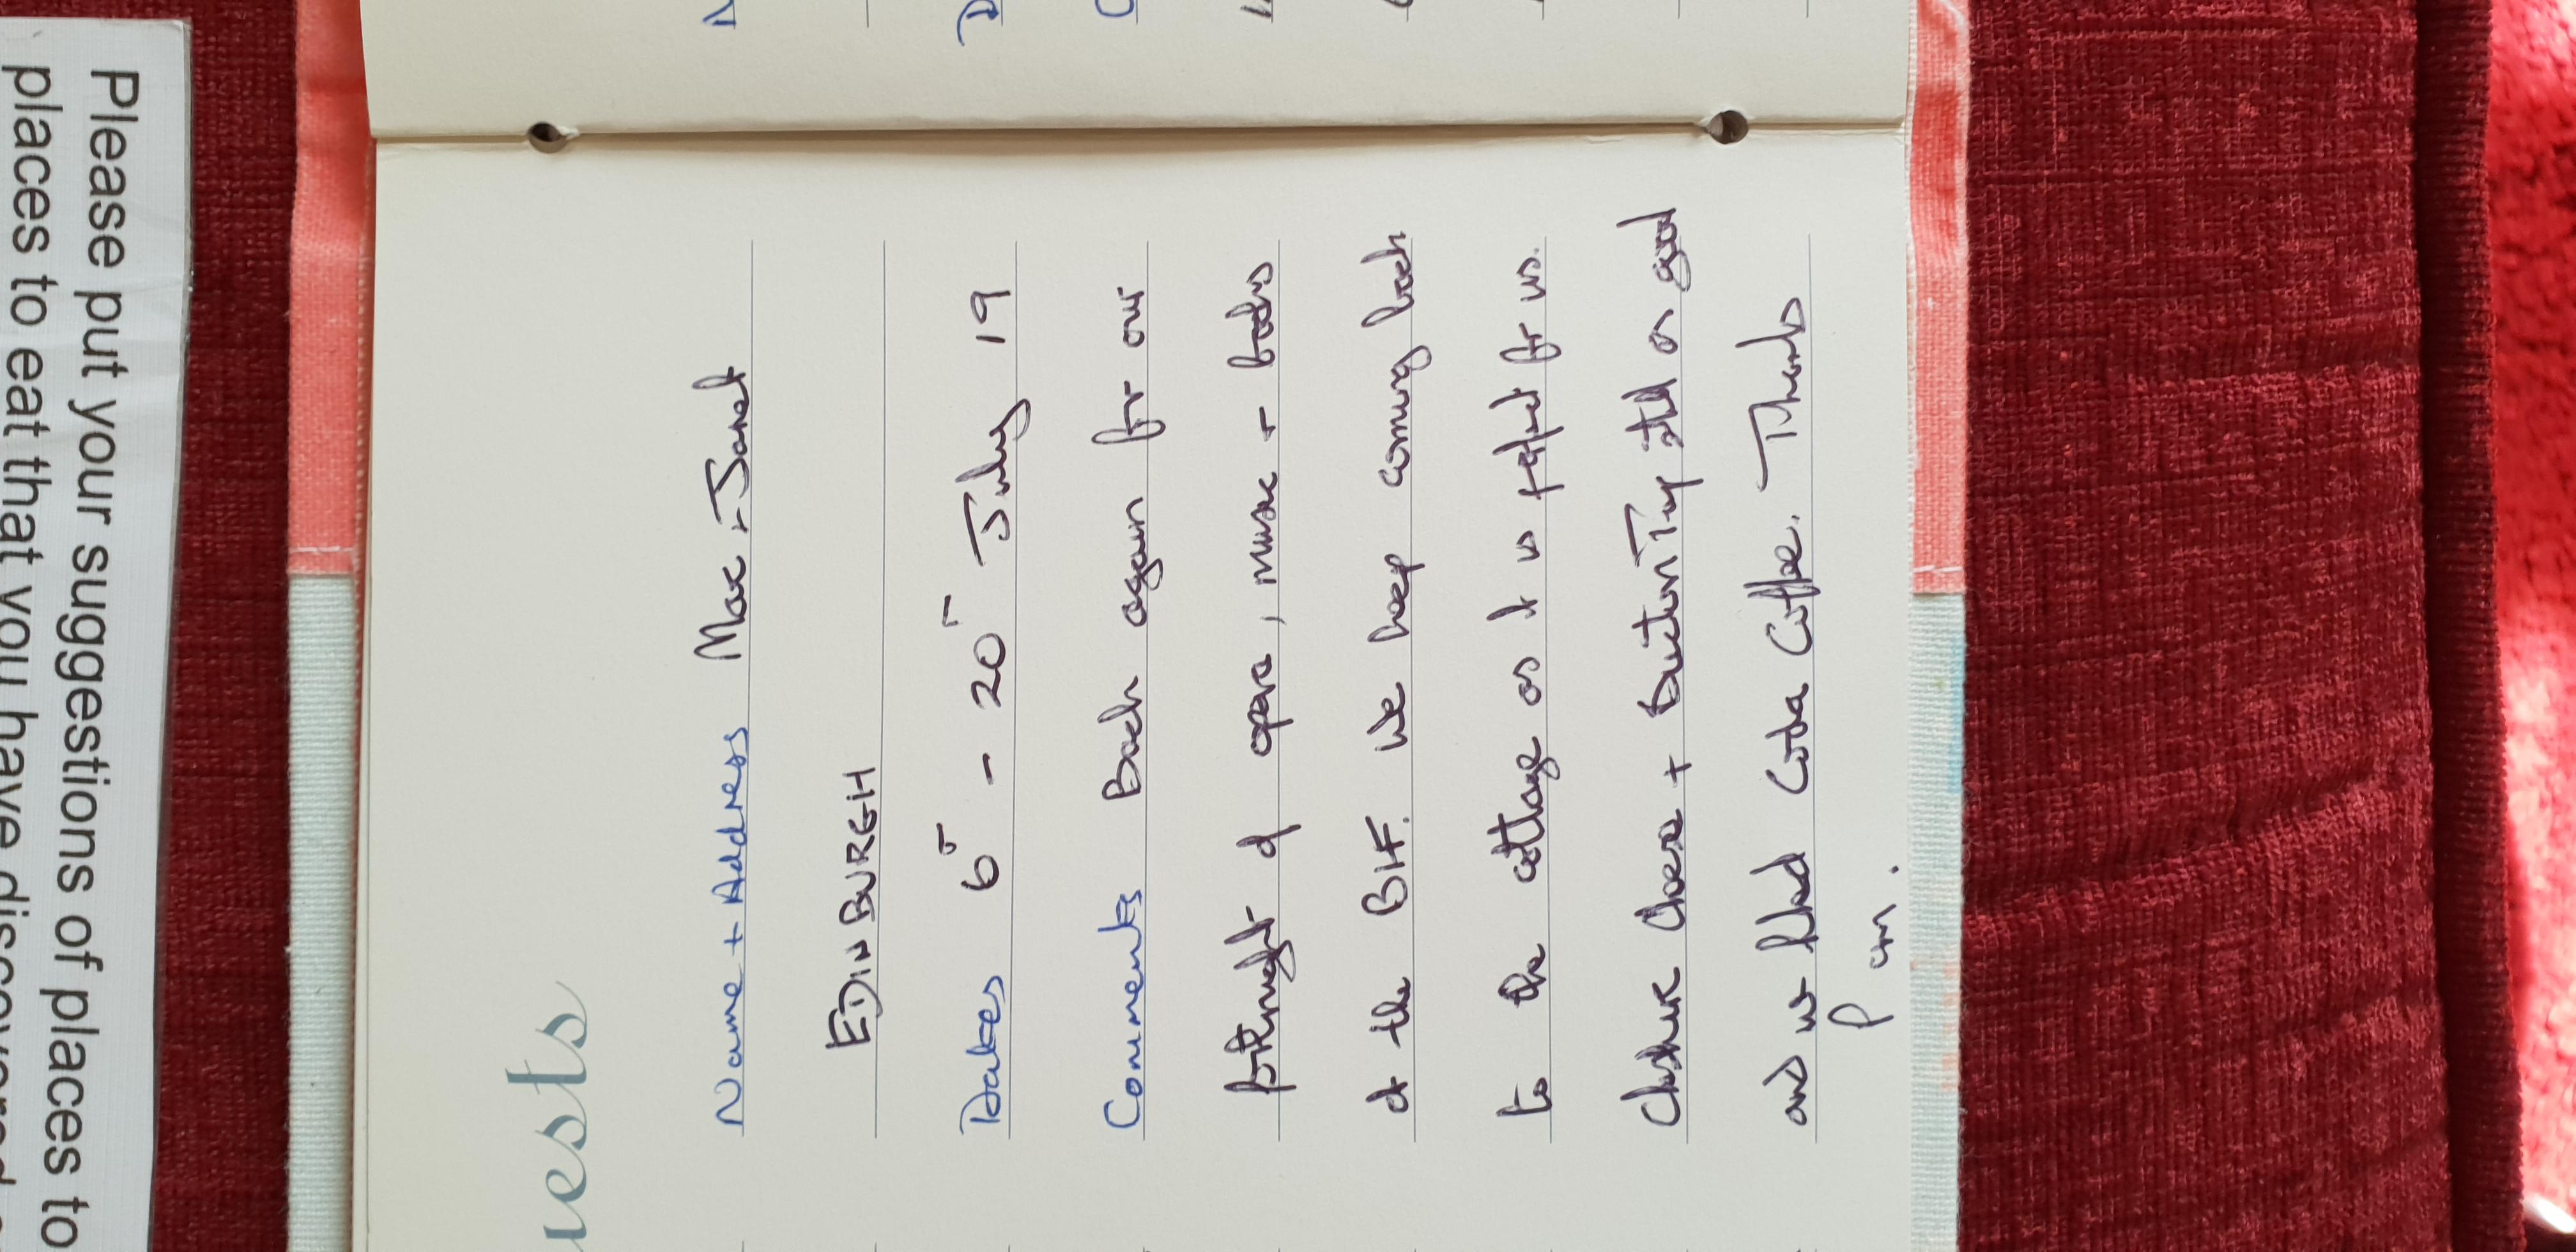 Please put your suggestions of places to
places to eat that you have
uests
Name + Address Max + Janet
EDINBURGH
Dates 6th - 20th July 19
Comments Back again for our
fortnight of opera, music + books
at the BIF. We keep coming back
to the cottage as it is perfect for us.
Cheshire Cheese + Buxton Tap still as good
and we liked Coda Coffee. Thanks